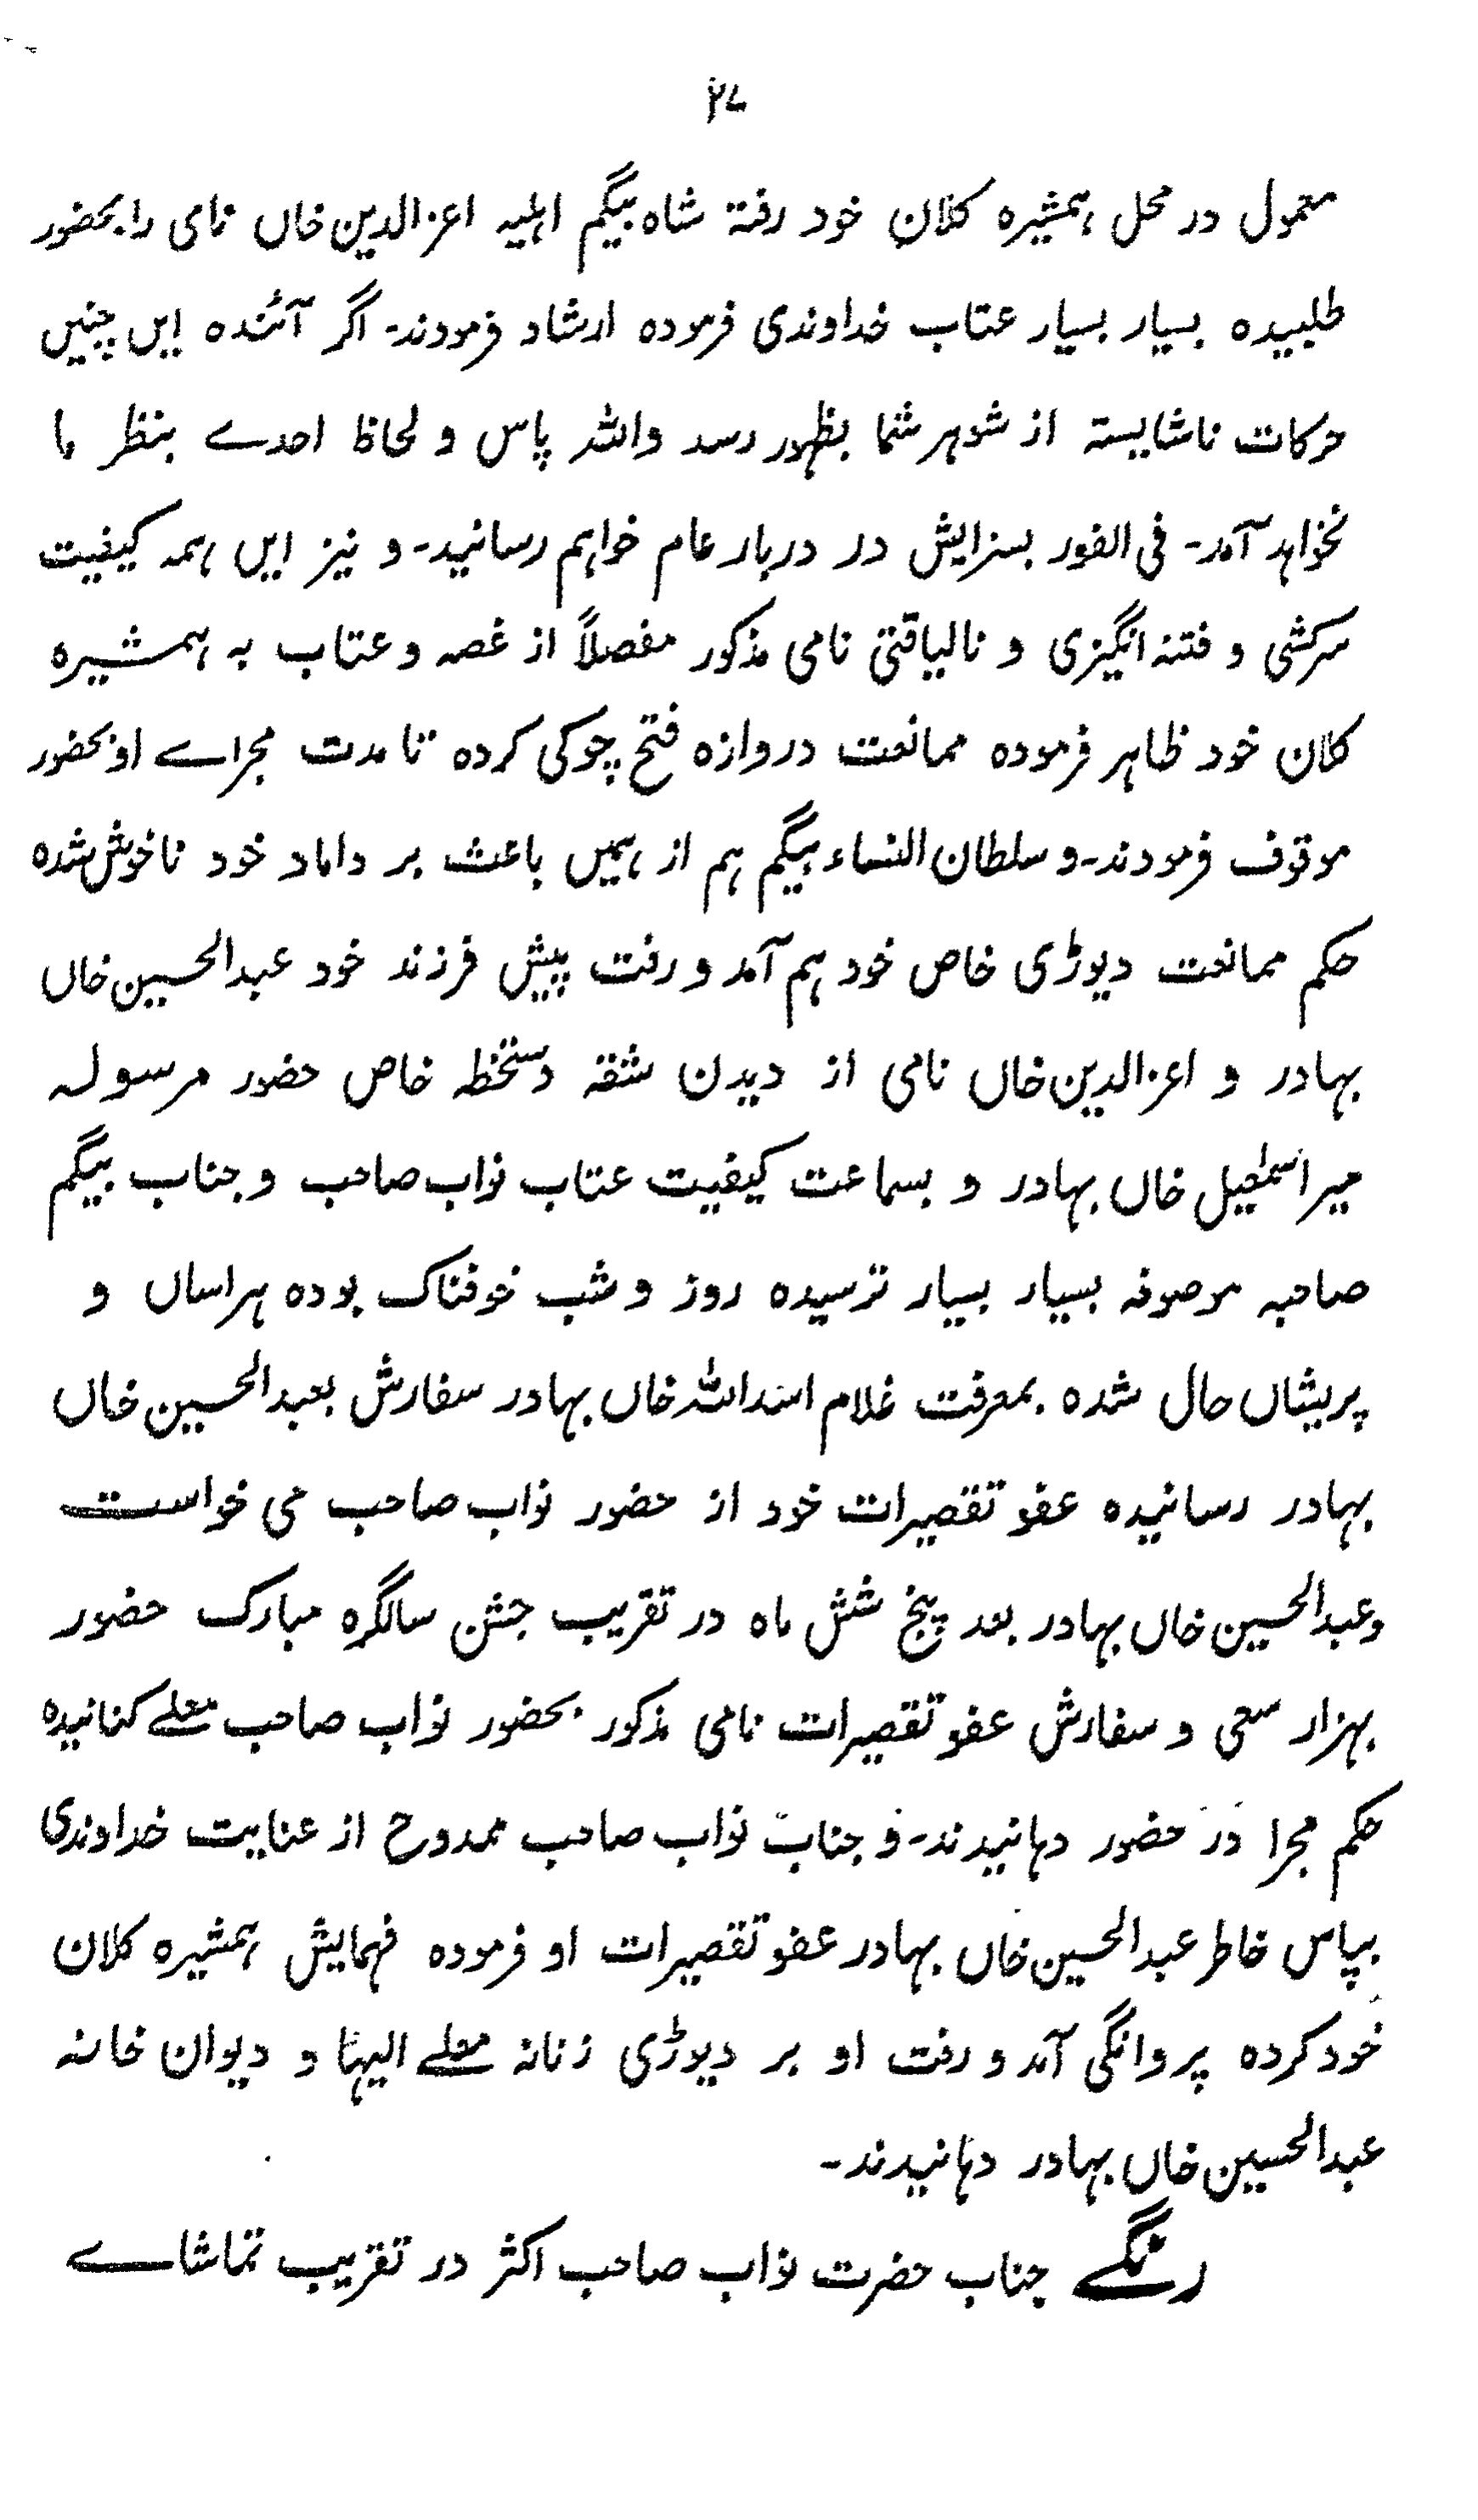 ۲۷
معمول در محل ہمشیرہ کلان خود رفتہ شاہ بیگم اہلیہ اعزالدین خاں نامی را بحضور
طلبیدہ بسیار بسیار عتاب خداوندی فرمودہ ارشاد فرمودند۔ اگر آئندہ ایں چنیں
حرکات ناشایستہ از شوہر شما بظہور رسد واللہ پاس و لحاظ احدے بنظر ما
نخواہد آمد۔ فی الفور بسزایش در دربار عام خواہم رسانید۔ و نیز ایں ہمہ کیفیت
سرکشی و فتنہ انگیزی و نالیاقتی نامی مذکور مفصلاً از غصہ و عتاب بہ ہمشیرہ
کلان خود ظاہر فرمودہ ممانعت دروازہ فتح چوکی کردہ تا مدت مجراے او بحضور
موقوف فرمودند۔ و سلطان النساء بیگم ہم از ہمیں باعث بر داماد خود ناخوش شدہ
حکم ممانعت دیوڑی خاص خود ہم آمد و رفت پیش فرزند خود عبدالحسین خاں
بہادر و اعزالدین خاں نامی از دیدن شقہ دستخطہ خاص حضور مرسولہ
میر اسمٰعیل خاں بہادر و بسماعت کیفیت عتاب نواب صاحب و جناب بیگم
صاحبہ موصوفہ بسیار بسیار ترسیدہ روز و شب خوفناک بودہ ہراساں و
پریشاں حال شدہ بمعرفت غلام اسداللہ خاں بہادر سفارش بعبدالحسین خاں
بہادر رسانیدہ عفو تقصیرات خود از حضور نواب صاحب می خواست
وعبدالحسین خاں بہادر بعد پنج شش ماہ در تقریب جشن سالگرہ مبارک حضور
بہزار سعی و سفارش عفو تقصیرات نامی مذکور بحضور نواب صاحب معلے کنانیدہ
حکم مجرا در حضور دہانیدند۔ و جناب نواب صاحب ممدوح از عنایت خداوندی
بپاس خاطر عبدالحسین خاں بہادر عفو تقصیرات او فرمودہ فہمایش ہمشیرہ کلان
خود کردہ پروانگی آمد و رفت او بر دیوڑی زنانہ معلے الیہا و دیوان خانہ
عبدالحسین خاں بہادر دہانیدند۔
رنگے جناب حضرت نواب صاحب اکثر در تقریب تماشاے